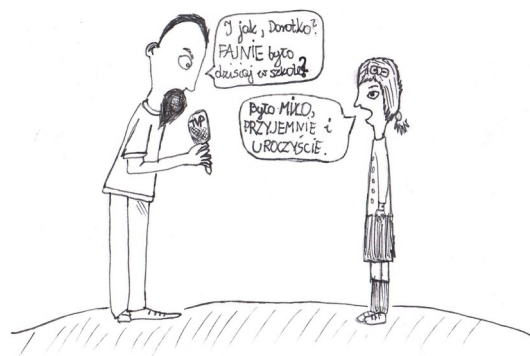 I jak, Dorotko?
FAJNIE było
dzisiaj w szkole?
TVP
Było MIŁO,
PRZYJEMNIE i
UROCZYŚCIE.